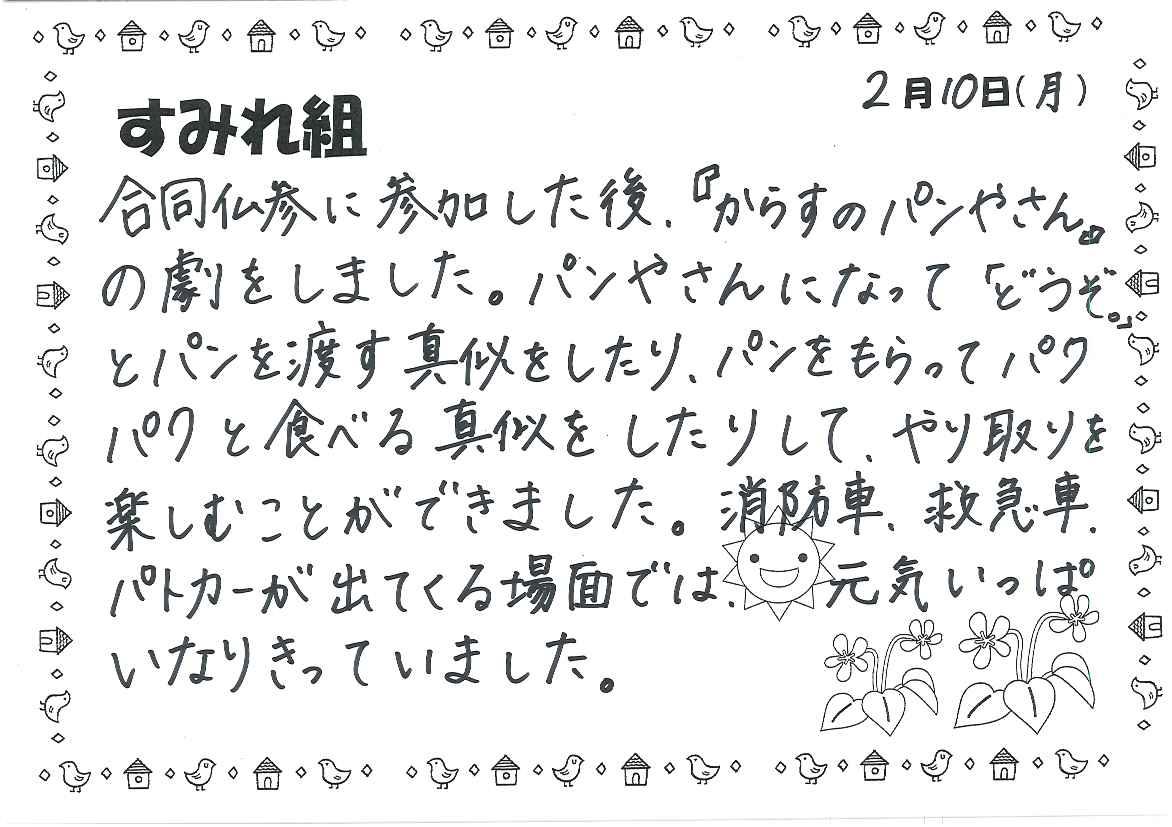 2月10日(月)
すみれ組
合同仏参に参加した後、『からすのパンやさん』
の劇をしました。パンやさんになって「どうぞ。」
とパンを渡す真似をしたり、パンをもらってパク
パクと食べる真似をしたりして、やり取りを
楽しむことができました。消防車、救急車、
パトカーが出てくる場面では、元気いっぱ
いなりきっていました。